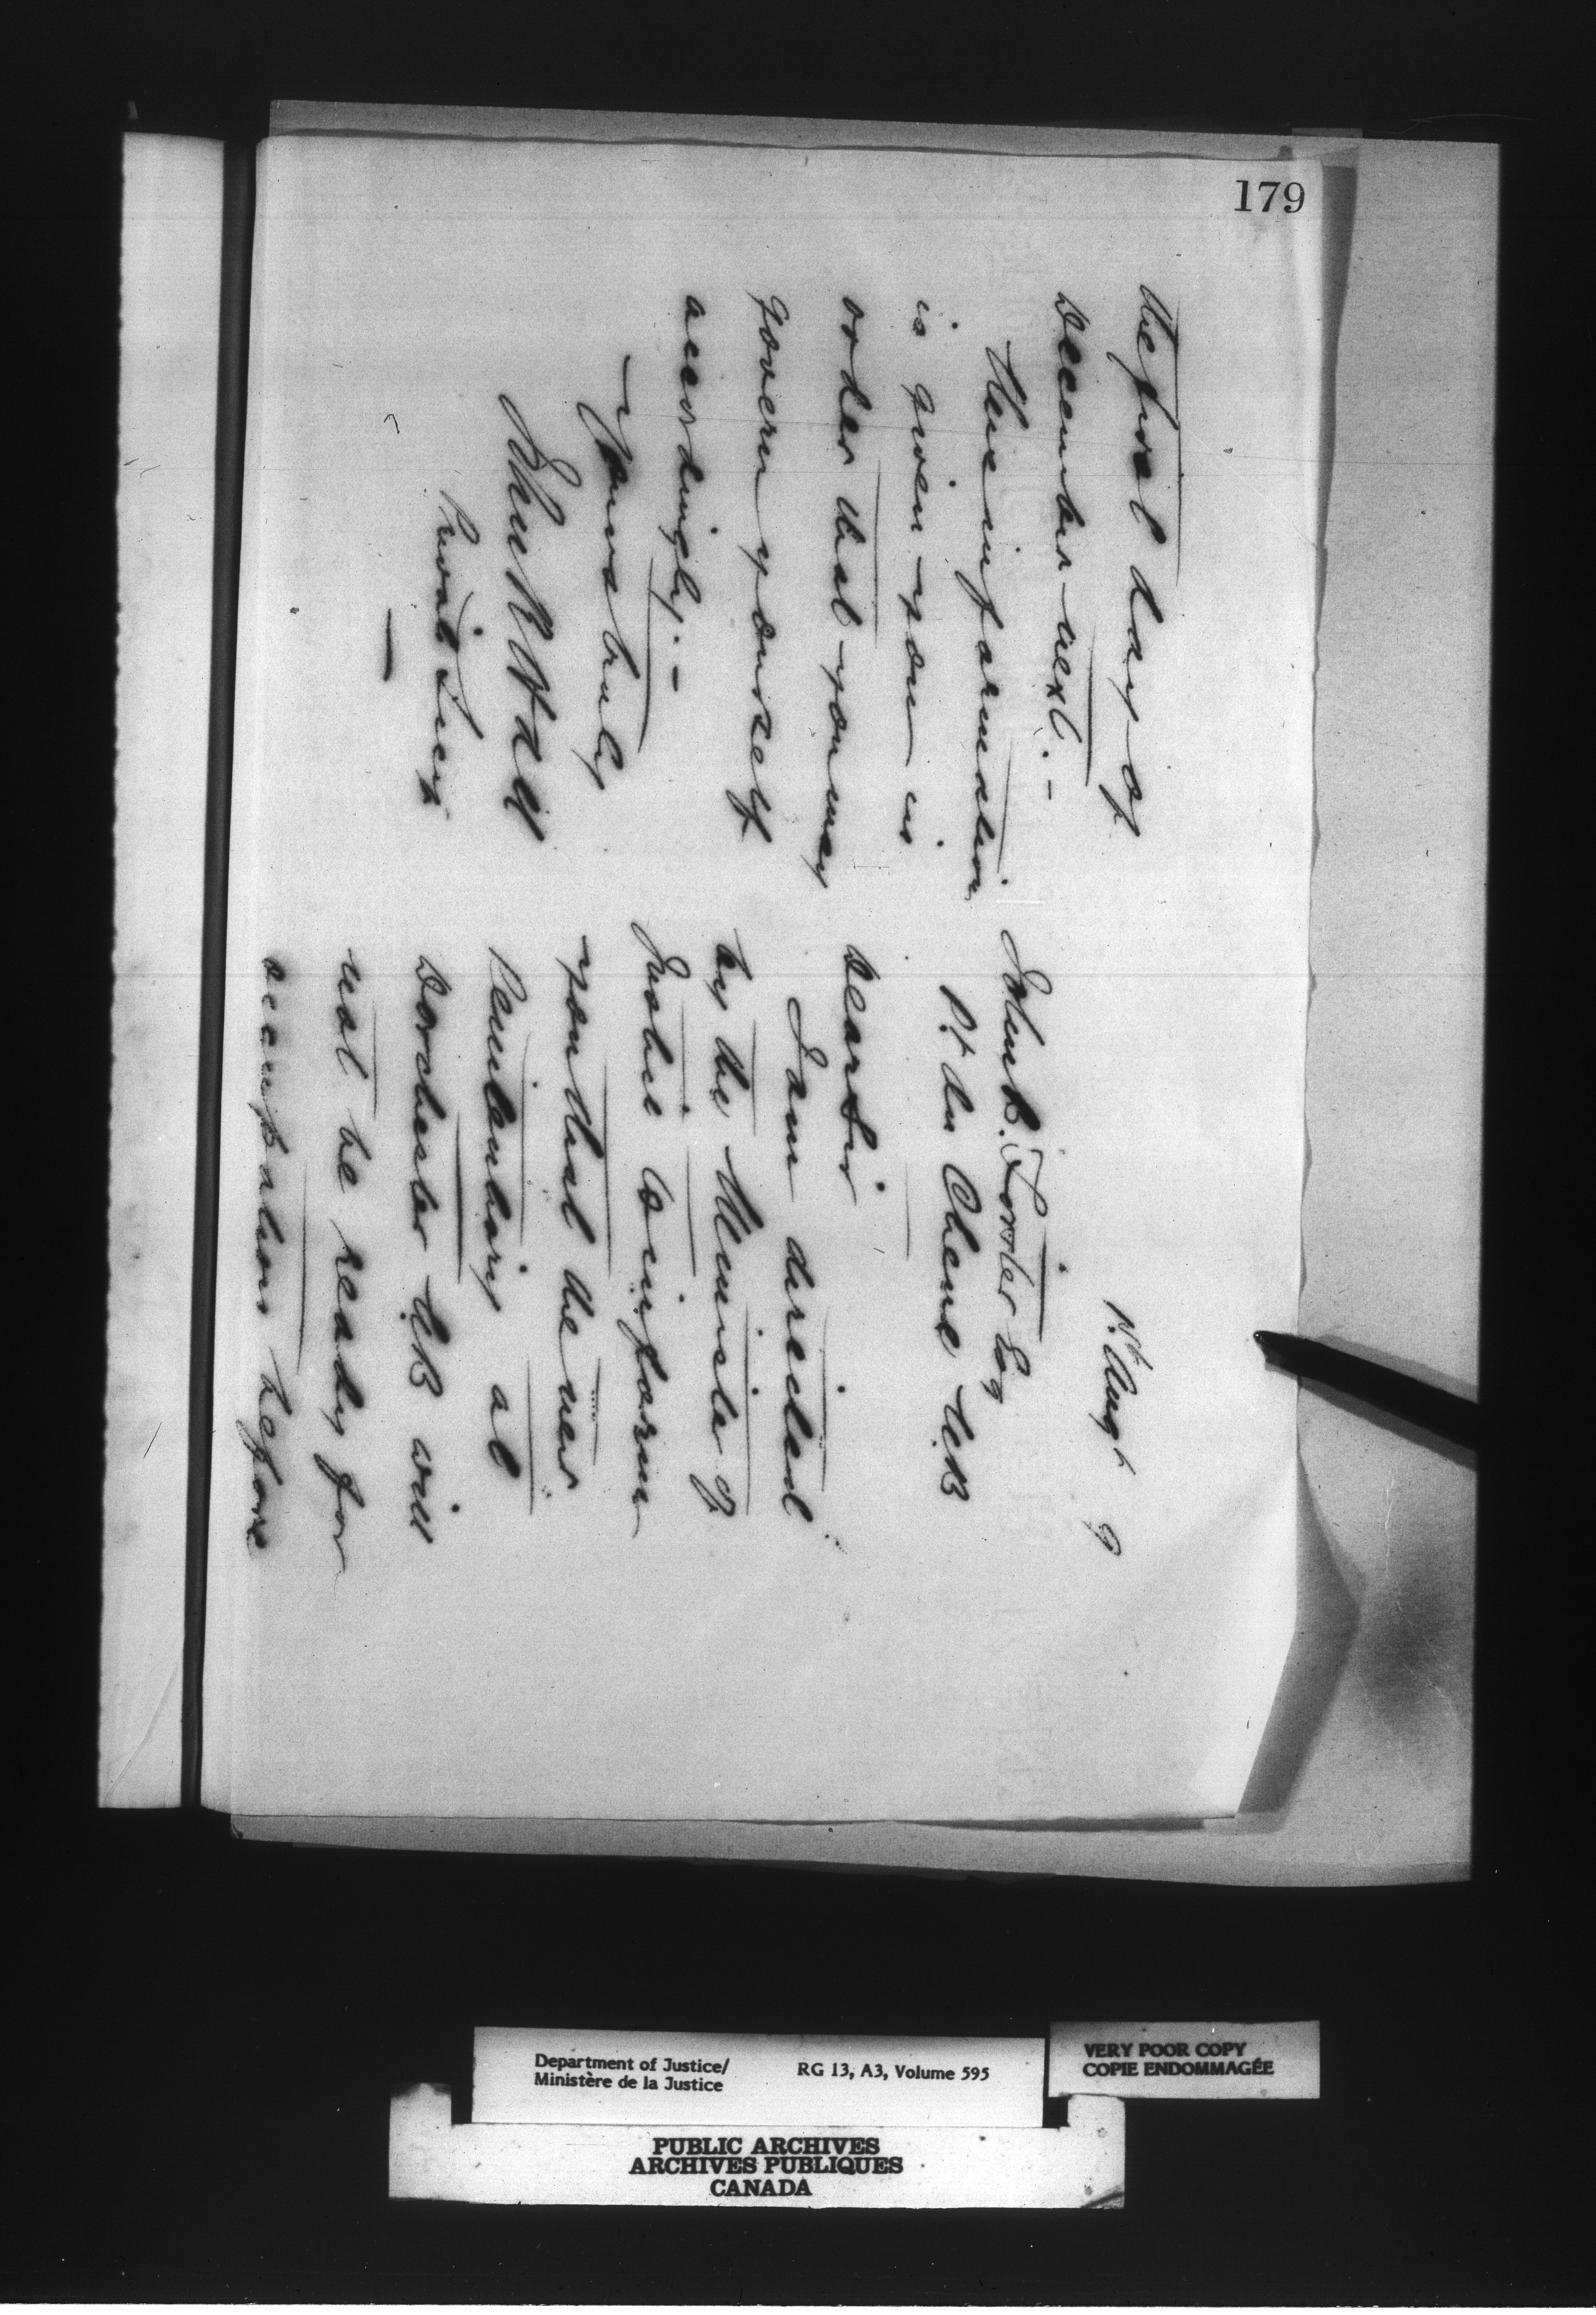 179
1st Augt 9
John B. Forster Esq
Pt du Chene NB
Dear Sir
I am directed
by the Minister of
Justice to inform
you that the new
Penitentiary at
Dorchester NB will
not be ready for
occupation before
the first day of
December next. –
This information
is given you in
order that you may
govern yourself
accordingly. –
Yours truly
Private Secy
Department of Justice/
Ministère de la Justice
RG 13, A3, Volume 595
VERY POOR COPY
COPIE ENDOMMAGÉE
PUBLIC ARCHIVES
ARCHIVES PUBLIQUES
CANADA